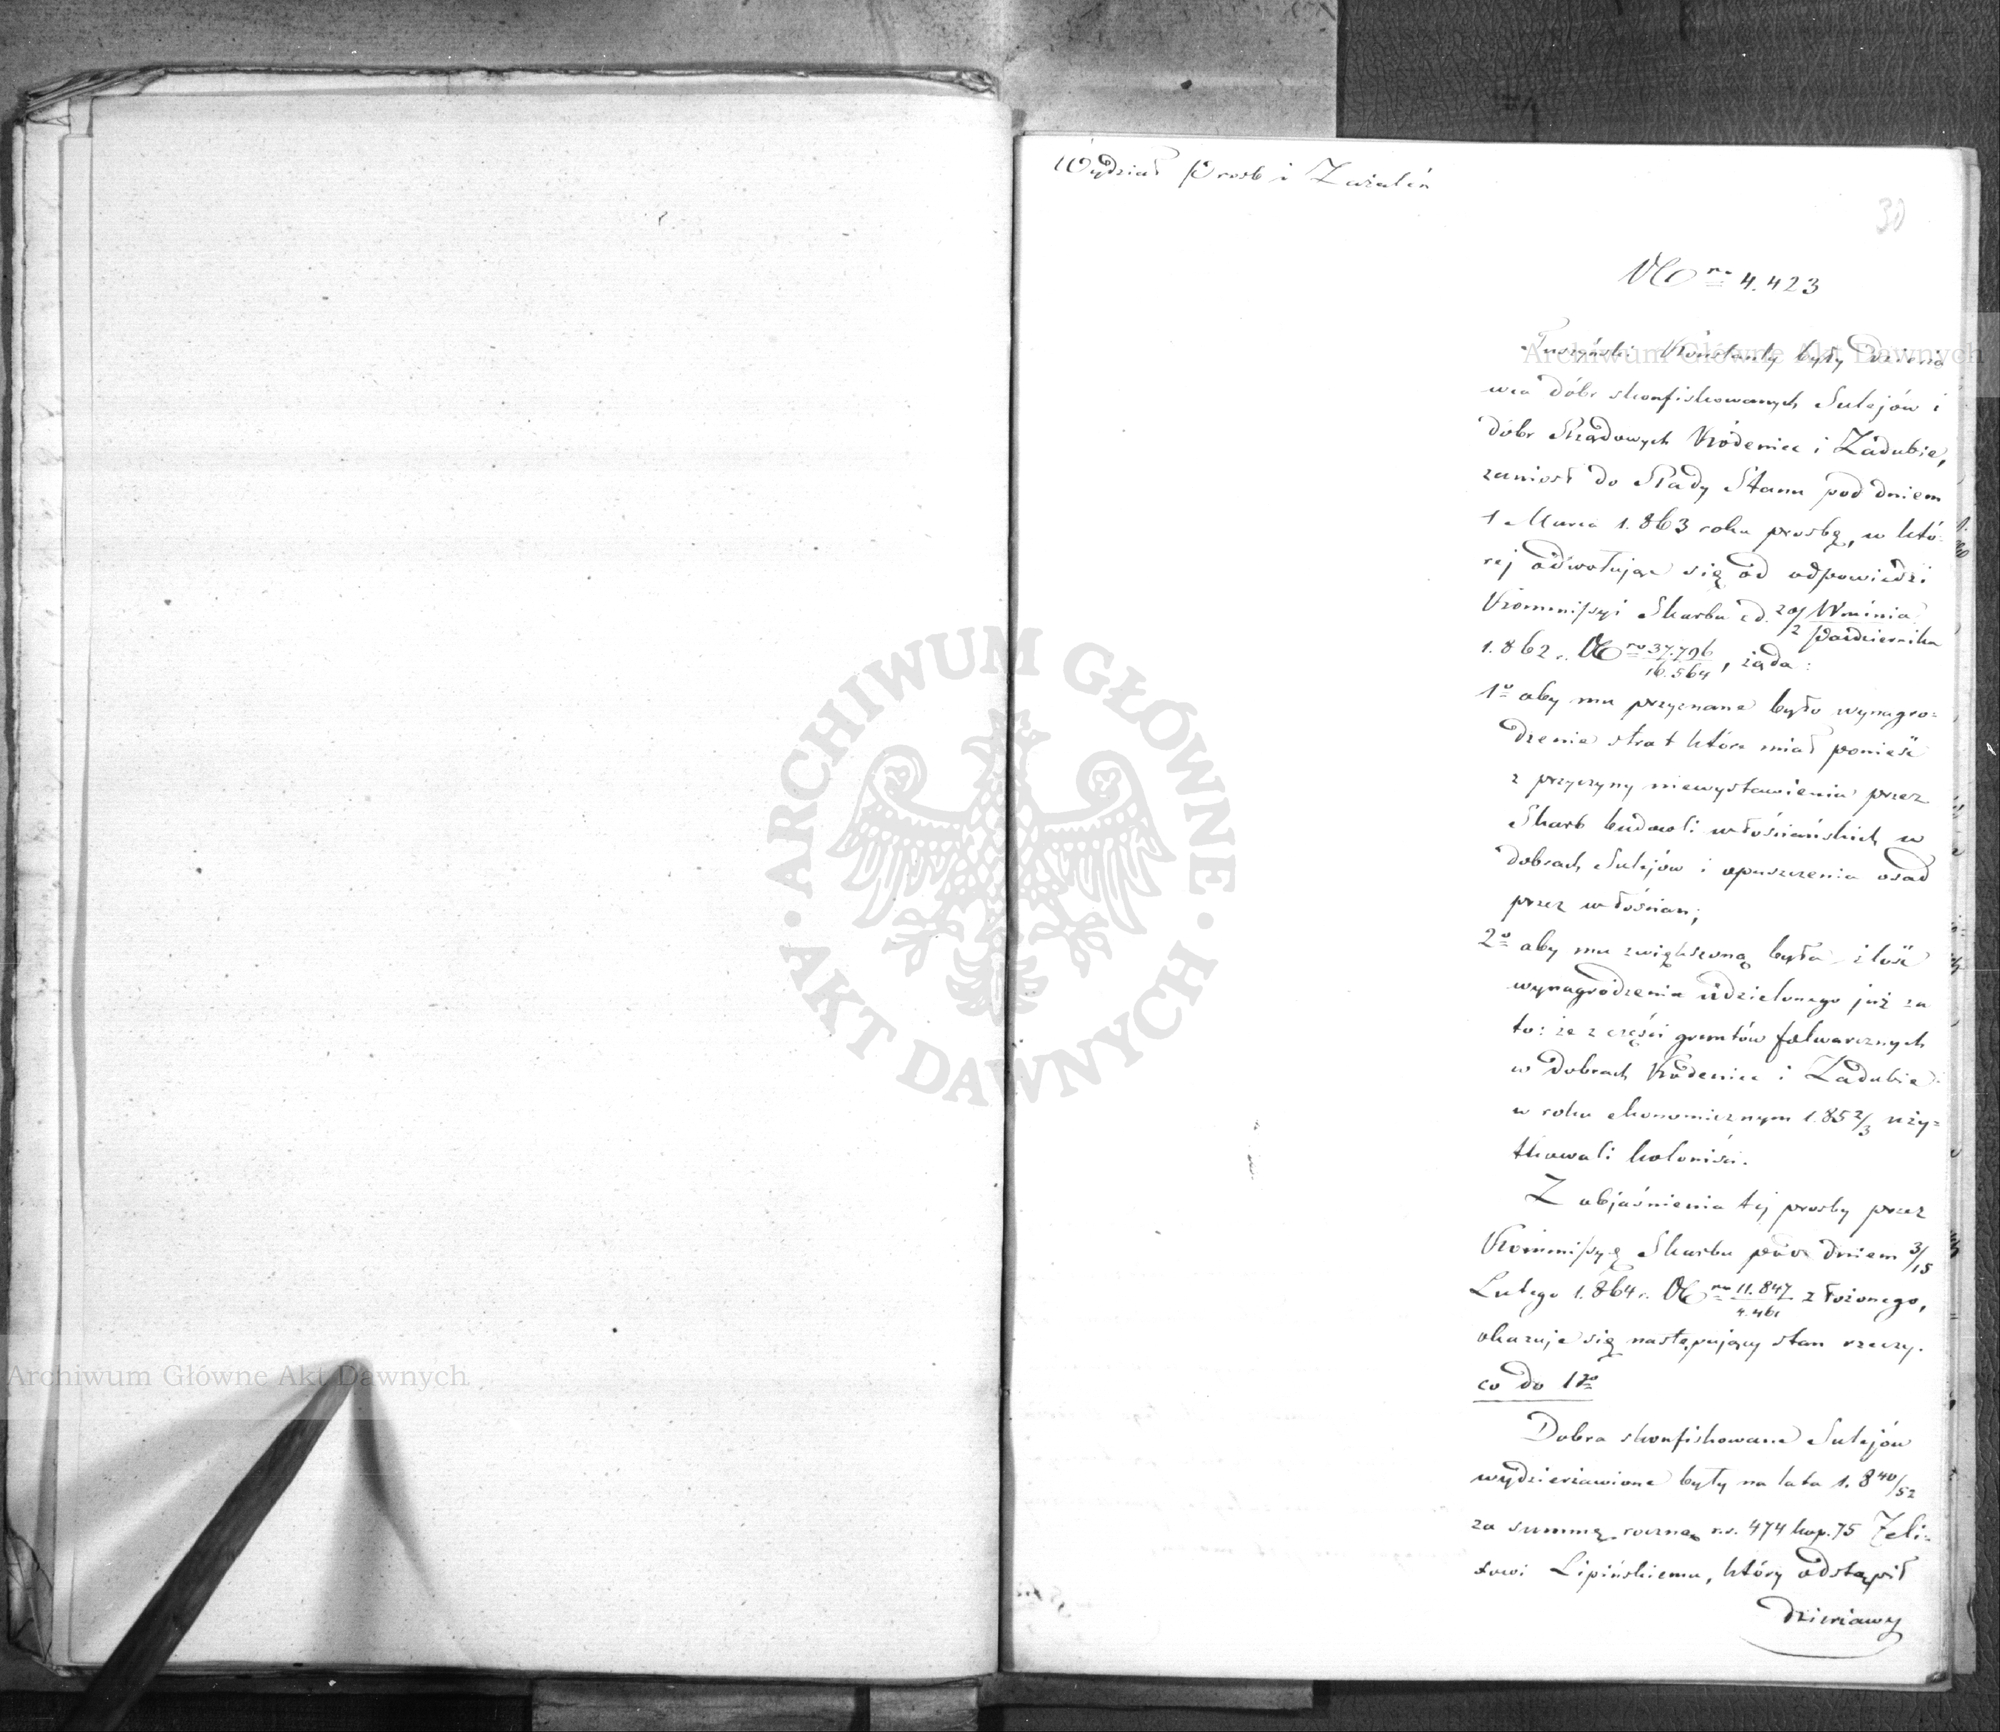 Wydział Prosb i Zażaleń
30
Nro 4.423
Konstanty były Dzierża
wca dóbr skonfiskowanych Sulejów i
dobr Rządowych Kodeniec i Zadubie,
zaniosł do Rady Stanu pod dniem
1 Marca 1.863 roku prosbę, w któ-
rej odwołując się od odpowiedzi
Kommissyi Skarbu z d. 20/2 Września/Października
1.862 r. Nro 37.796/16.564, żąda:
1o aby mu przyznane było wynagro-
dzenie strat które miał ponieść
z przyczyny niewystawienia przez
Skarb budowli włościańskich w
dobrach Sulejów i opuszczenia osad
przez włościan;
2o aby mu zwiększoną była ilość
wynagrodzenia udzielonego już za
to: że z części gruntów folwarcznych
w dobrach Kodeniec i Zadubie
w roku ekonomicznym 1.852/3 uży-
tkowali koloniści.
Z objaśnienia tej prosby przez
Kommissyę Skarbu pod dniem 3/15
Lutego 1.864 r. Nro 11.847/4.461 złożonego,
okazuje się następujący stan rzeczy.
co do 1go
Dobra skonfiskowane Sulejów
wydzierżawione były na lata 1.840/52
za summę roczną r.s. 474 kop. 75 Feli-
xowi Lipińskiemu, który odstąpił
dzierżawy
Archiwum Główne Akt Dawnych
Archiwum Główne Akt Dawnych
ARCHIWUM GŁÓWNE
AKT DAWNYCH